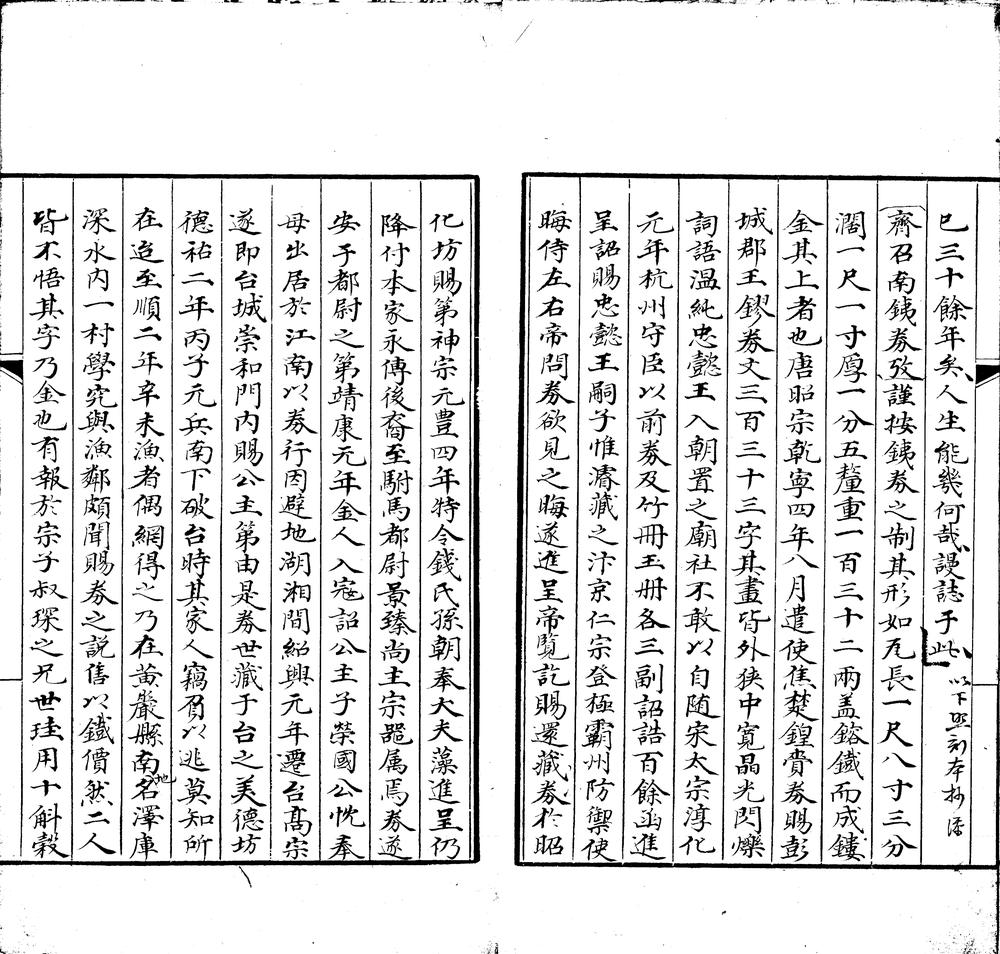 已三十餘年矣人生能幾何哉謾誌于此以下照刻本抄添
齊召南銕券攷謹按銕券之制其形如瓦長一尺八寸三分
濶一尺一寸厚一分五釐重一百三十二兩盖鎔鐵而成鏤
金其上者也唐昭宗乾寧四年八月遣使焦楚鍠賫券賜彭
城郡王鏐券文三百三十三字其畫皆外狹中寬晶光閃爍
詞語温純忠懿王入朝置之廟社不敢以自随宋太宗淳化
元年杭州守臣以前券及竹冊玉册各三副詔誥百餘函進
呈詔賜忠懿王嗣子惟濬藏之汴京仁宗登極霸州防禦使
晦侍左右帝問券欲見之晦遂進呈帝覽訖賜還藏券於昭
化坊賜第神宗元豊四年特令錢氏孫朝奉大夫藻進呈仍
降付本家永傳後裔至駙馬都尉景臻尚主宗器属焉券遂
安于都尉之第靖康元年金人入寇詔公主子榮國公忱奉
母出居於江南以券行因避地湖湘間紹興元年遷台髙宗
遂即台城崇和門内賜公主第由是券世藏于台之美德坊
德祐二年丙子元兵南下破台時其家人竊負以逃莫知所
在迨至順二年辛未漁者偶網得之乃在黄巖縣南地名澤庫
深水内一村學究與漁鄰頗聞賜券之説售以鐵價然二人
皆不悟其字乃金也有報於宗子叔琛之兄世珪用十斛穀